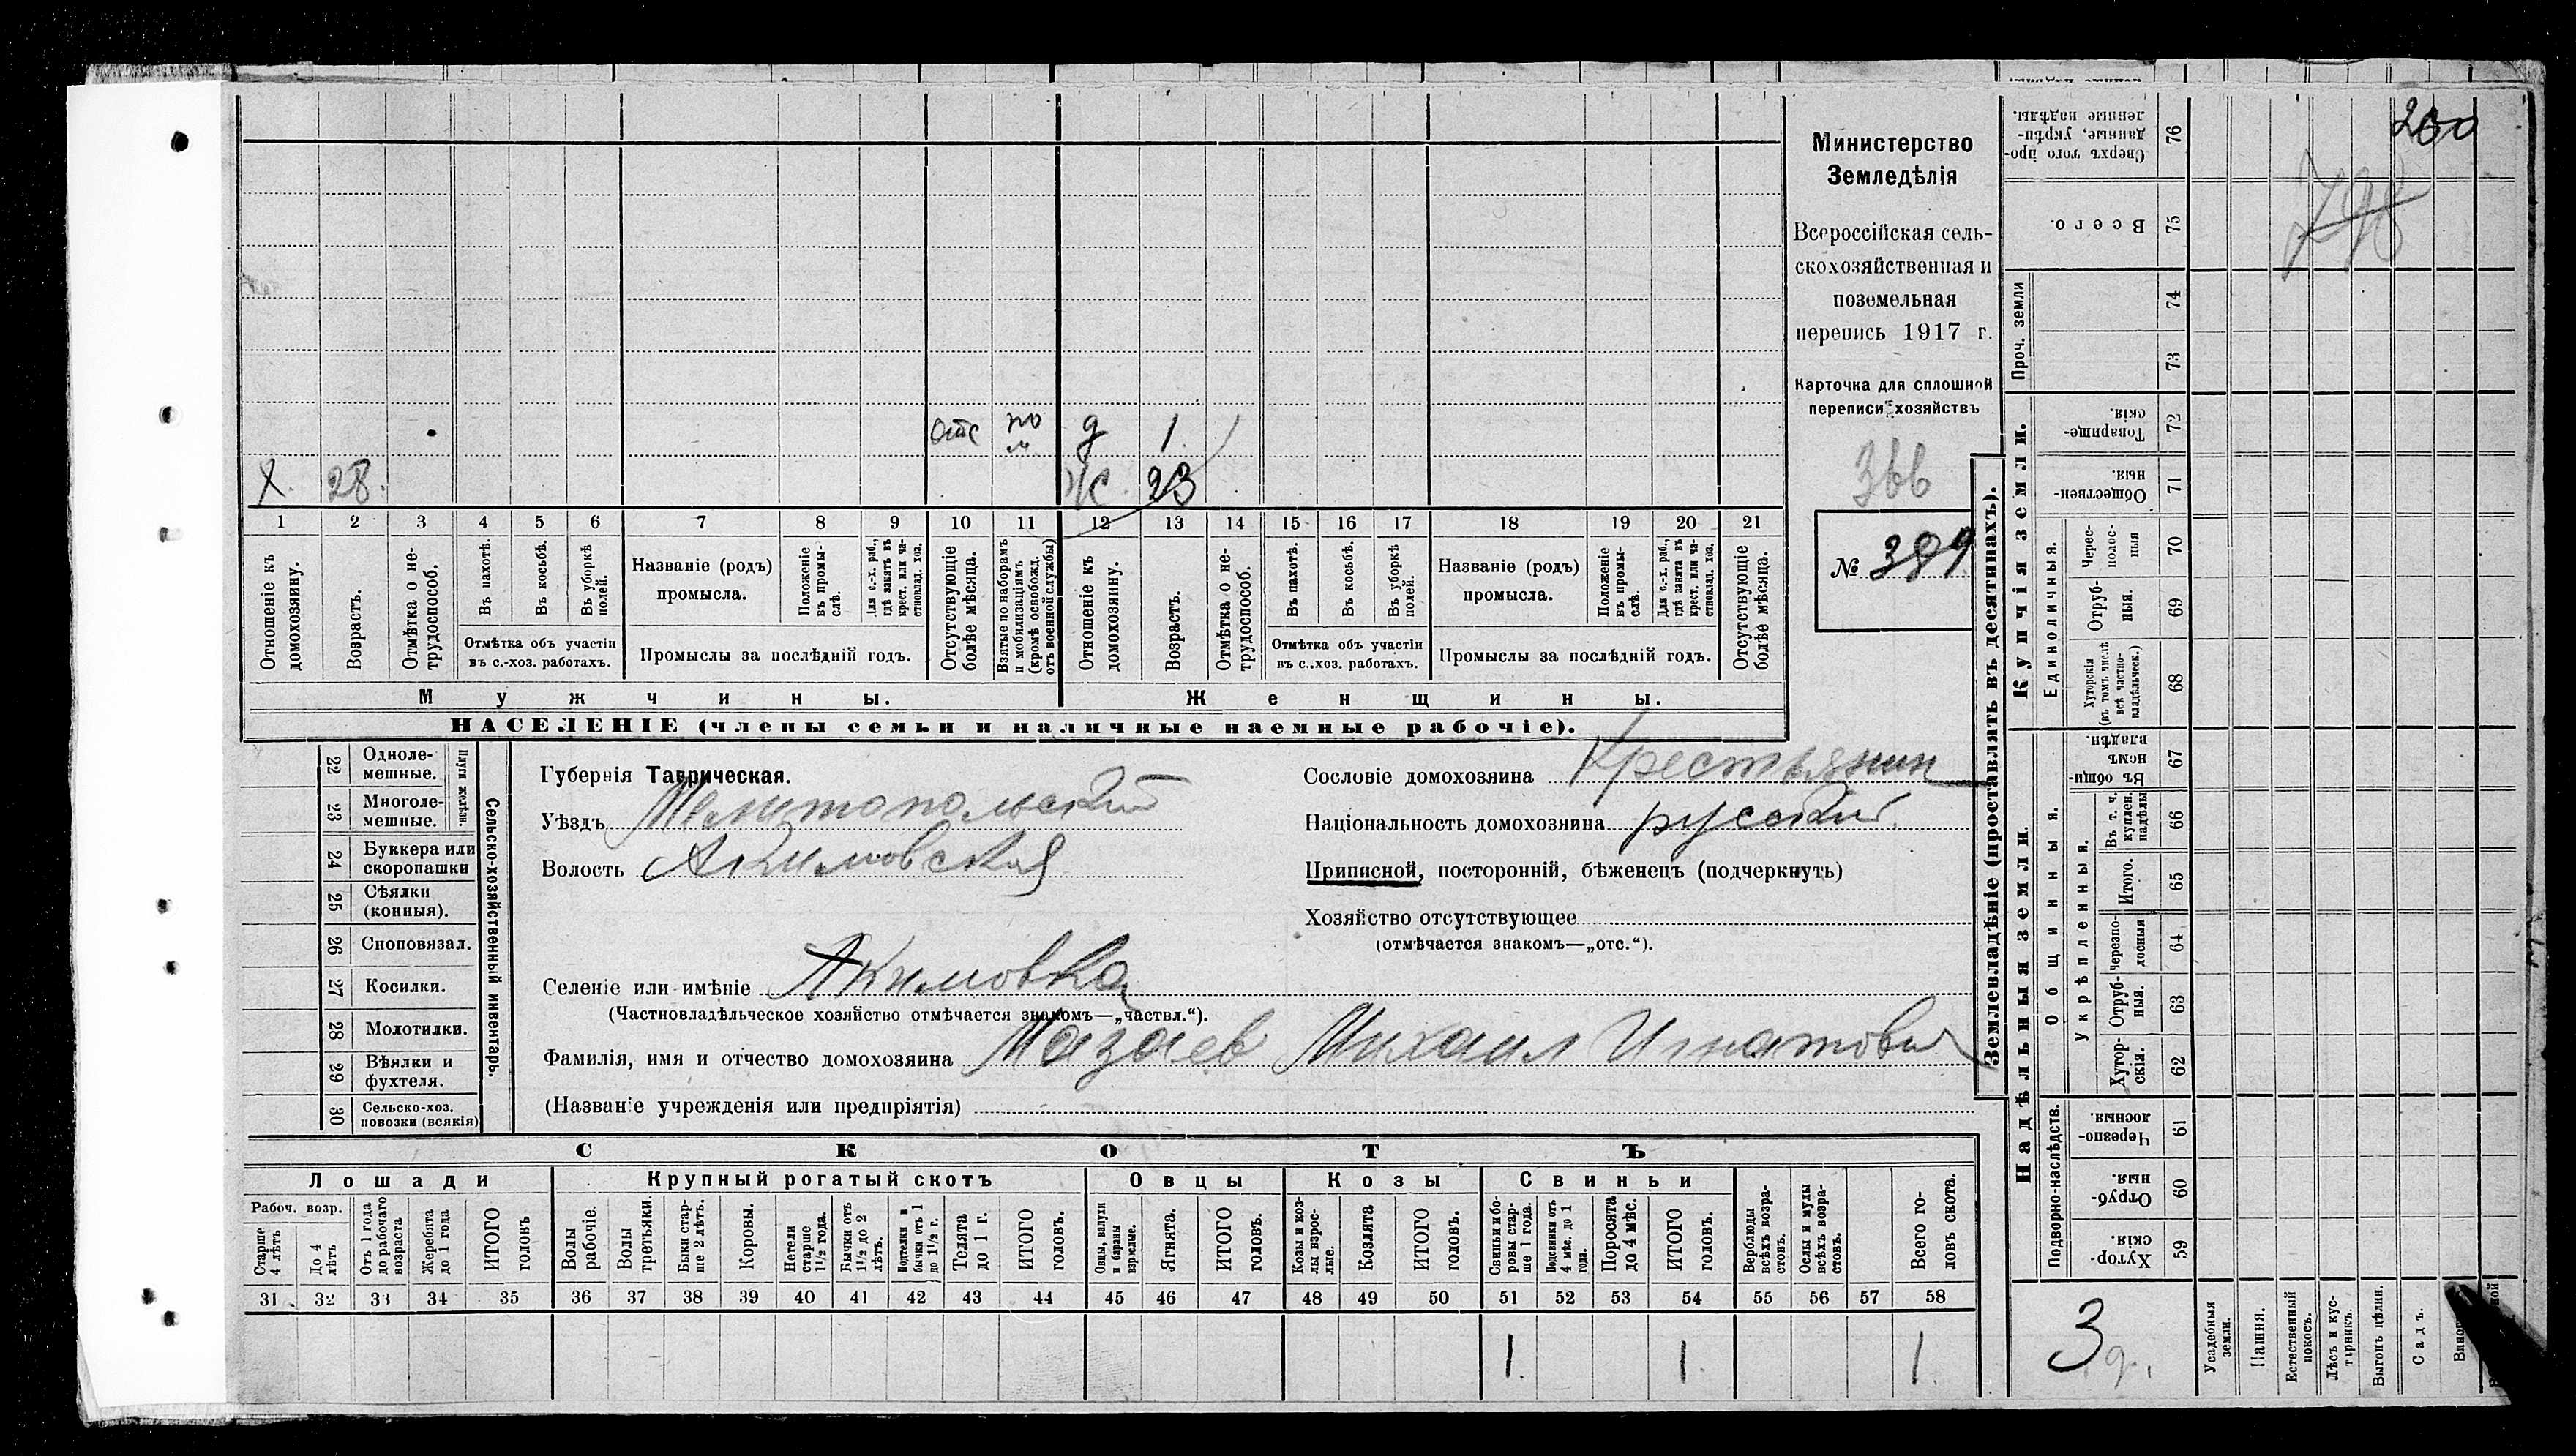 отс по м д 1
Х. 28. Ж. 23
1 2 3 4 5 6 7 8 9 10 11 12 13 14 15 16 17 18 19 20 21
Отношеніе къ домохозяину.
Возрастъ.
Отмѣтка о не-
трудоспособ.
Въ пахотѣ.
Въ косьбѣ.
Въ уборкѣ
полей.
Отмѣтка объ участіи
въ с.-хоз. работахъ.
Названіе (родъ)
промысла.
Положеніе
въ промы-
слѣ.
Для с.-х. раб.,
гдѣ занятъ въ
крест. или ча-
стновлад. хоз.
Промыслы за послѣдній годъ.
Отсутствующіе
болѣе мѣсяца.
Взятые по наборамъ
и мобилизаціямъ
(кромѣ освобожд.
отъ военной службы)
Отношеніе къ
домохозяину.
Возрастъ.
Отмѣтка о не-
трудоспособ.
Въ пахотѣ.
Въ косьбѣ.
Въ уборкѣ
полей.
Отмѣтка объ участіи
въ с..хоз. работахъ.
Названіе (родъ)
промысла.
Положеніе
въ промы-
слѣ.
Для с.-х. раб.,
гдѣ занята въ
крест. или ча-
стновлад. хоз.
Промыслы за послѣдній годъ.
Отсутствующіе
болѣе мѣсяца.
Мужчины. Женщины.
НАСЕЛЕНІЕ (члены семьи и наличные наемные рабочіе).
Министерство
Земледѣлія
Всероссійская сель-
скохозяйственная и
поземельная
перепись 1917 г.
Карточка для сплошной
переписи хозяйствъ
366
№ 399
22 Одноле-
мешные.
23 Многоле-
мешные.
Плуги желѣзн.
24 Буккера или
скоропашки
25 Сѣялки
(конныя).
26 Сноповязал.
27 Косилки.
28 Молотилки.
29 Вѣялки и
фухтеля.
30 Сельско-хоз.
повозки (всякія)
Сельско-хозяйственный инвентарь.
Губернія Таврическая.
Уѣздъ Мелитопольский
Волость Акимовская
Селеніе или имѣніе Акимовка
(Частновладѣльческое хозяйство отмѣчается знакомъ—„частвл.“).
Фамилія, имя и отчество домохозяина Мазаев Михаил Игнатович
(Названіе учрежденія или предпріятія)
Сословіе домохозяина Крестьянин
Національность домохозяина русский.
Приписной, посторонній, бѣженецъ (подчеркнуть)
Хозяйство отсутствующее
(отмѣчается знакомъ—„отс.“).
СКОТЪ
Лошади Крупный рогатый скотъ Овцы Козы Свиньи
Рабоч. возр.
Старше
4 лѣтъ
До 4
лѣтъ
Отъ 1 года
до рабочаго
возраста
Жеребята
до 1 года
ИТОГО
головъ
Волы
рабочіе.
Волы
третьяки.
Быки стар-
ше 2 лѣтъ.
Коровы.
Нетели
старше
1½ года.
Бычки отъ
1½ до 2
лѣтъ.
Подтелки и
бычки отъ 1
до 1½ г.
Телята
до 1 г.
ИТОГО
головъ.
Овцы, валухи
и бараны
взрослые.
Ягнята.
ИТОГО
головъ.
Козы и коз-
лы взрос-
лые.
Козлята
ИТОГО
головъ.
Свиньи и бо-
ровы стар-
ше 1 года.
Подсвинки отъ
4 мѣс. до 1
года.
Поросята
до 4 мѣс.
ИТОГО
головъ.
Верблюды
всѣхъ возра-
стовъ.
Ослы и мулы
всѣхъ возра-
стовъ.
Всего го-
ловъ скота.
31 32 33 34 35 36 37 38 39 40 41 42 43 44 45 46 47 48 49 50 51 52 53 54 55 56 57 58
1. 1. 1.
Землевладѣніе (проставлять въ десятинахъ).
Купчія земли.
Надѣльныя земли.
Сверхъ того про-
данные, укрѣп-
ленные надѣлы. 76
Всего. 75
Проч. земли 74 73
Товарище-
скія. 72
Обществен-
ныя. 71
Единоличныя.
Черес-
полос-
ныя 70
Отруб-
ныя. 69
Хуторскія
(въ томъ числѣ
всѣ частно-
владѣльческ.) 68
Общинныя.
Въ общи-
номъ
владѣн. 67
Укрѣпленныя.
Въ т. ч.
куплен.
надѣлы 66
Итого. 65
Черезпо-
лосныя 64
Отруб-
ныя. 63
Хутор-
скія. 62
Подворно-наслѣдств.
Черезпо-
лосныя 61
Отруб-
ныя. 60
Хутор-
скія. 59
3 д.
Усадебныя
земли.
Пашня.
Естественный
покосъ.
Лѣсъ и кус-
тарникъ.
Выгонъ цѣлин.
Садъ.
798